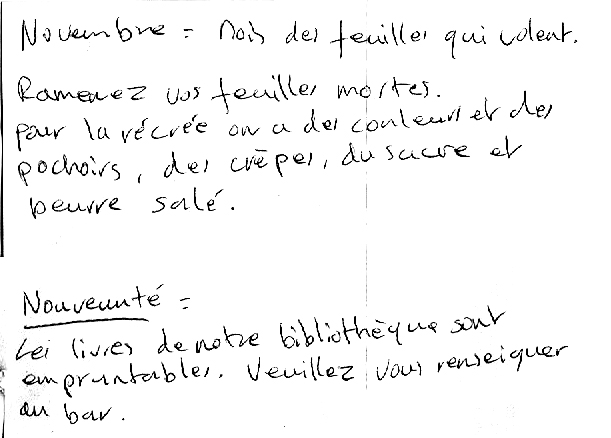 Novembre = Mois des feuilles qui volent.
Ramenez vos feuilles mortes.
pour la récrée on a des couleurs et des
pochoirs, des crêpes, du sucre et
beurre salé.
Nouveauté =
Les livres de notre bibliothèque sont
empruntables. Veuillez vous renseigner
au bar.